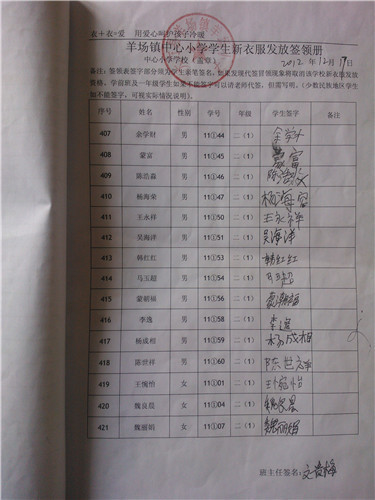 衣+衣=爱 用爱心呵护孩子冷暖
羊场镇中心小学学生新衣服发放签领册
中心小学学校(盖章) 2012年12月19日
备注:签领表签字部分须为学生亲笔签名,如果发现代签冒领现象将取消该学校新衣服发放
资格,学前班及一年级学生如果不能签字可以请老师代签,但需写明。(少数民族地区学生
如不能签字,可视实际情况说明)。
序号 姓名 性别 学号 年级 学生签字 备注
407 余学财 男 11①44 二(1)
408 蒙富 男 11①45 二(1) 蒙富
409 陈浩淼 男 11①46 二(1)
410 杨海荣 男 11①47 二(1) 杨海
411 王永祥 男 11①51 二(1) 王永祥
412 吴海洋 男 11①52 二(1) 吴海洋
413 韩红红 男 11①53 二(1) 韩红红
414 马玉超 男 11①54 二(1) 马玉超
415 蒙新福 男 11①56 二(1)
416 李逸 男 11①58 二(1) 李逸
417 杨成相 男 11①59 二(1) 杨成相
418 陈世祥 男 11①60 二(1) 陈世祥
419 王愧怡 女 11①01 二(1)
420 魏良晨 女 11①04 二(1) 魏良晨
421 魏丽娟 女 11①07 二(1) 魏丽娟
班主任签名: